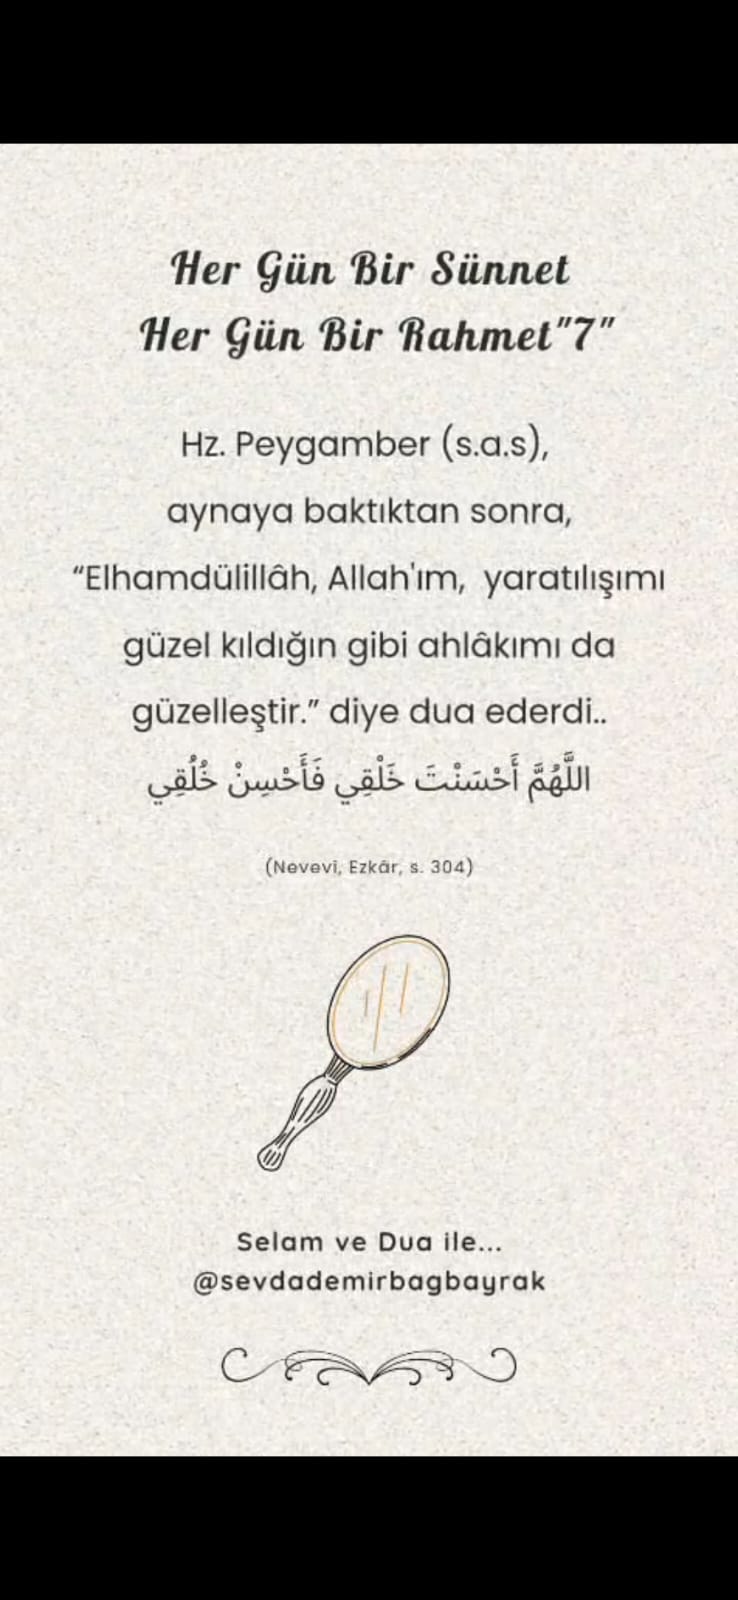 Her Gün Bir Sünnet
Her Gün Bir Rahmet"7"
Hz. Peygamber (s.a.s),
aynaya baktıktan sonra,
“Elhamdülillâh, Allah'ım,  yaratılışımı
güzel kıldığın gibi ahlâkımı da
güzelleştir.” diye dua ederdi..
اللَّهُمَّ أَحْسَنْتَ خَلْقِي فَأَحْسِنْ خُلُقِي
(Nevevî, Ezkâr, s. 304)
Selam ve Dua ile...
@sevdademirbagbayrak